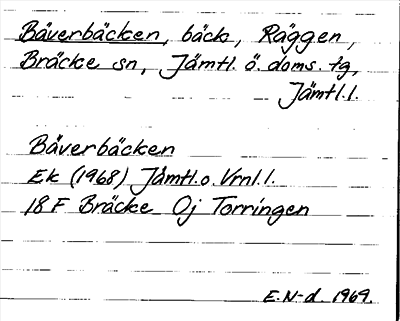 Bäverbäcken, bäck, Räggen,
Bräcke sn, Jämtl. ö. doms. tg,
Jämtl. l.
Bäverbäcken
Ek (1968) Jämtl. o. Vrnl. l.
18 F Bräcke Oj Torringen
E. N-d. 1969.